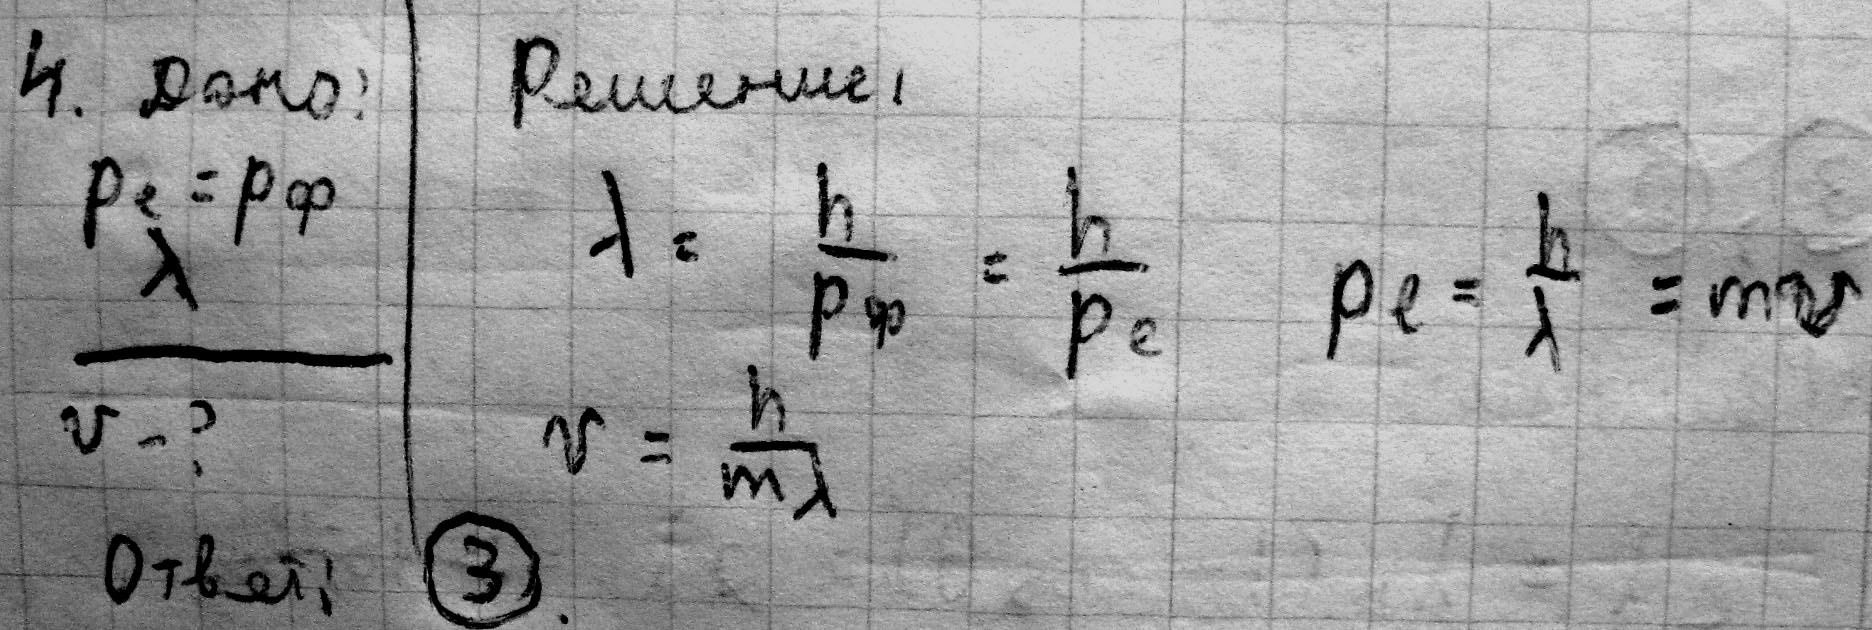 4. Дано:
pₑ = pф
λ
v - ?
Решение:
λ = h/pф = h/pₑ   pₑ = h/λ = mv
v = h/mλ
Ответ: 3.